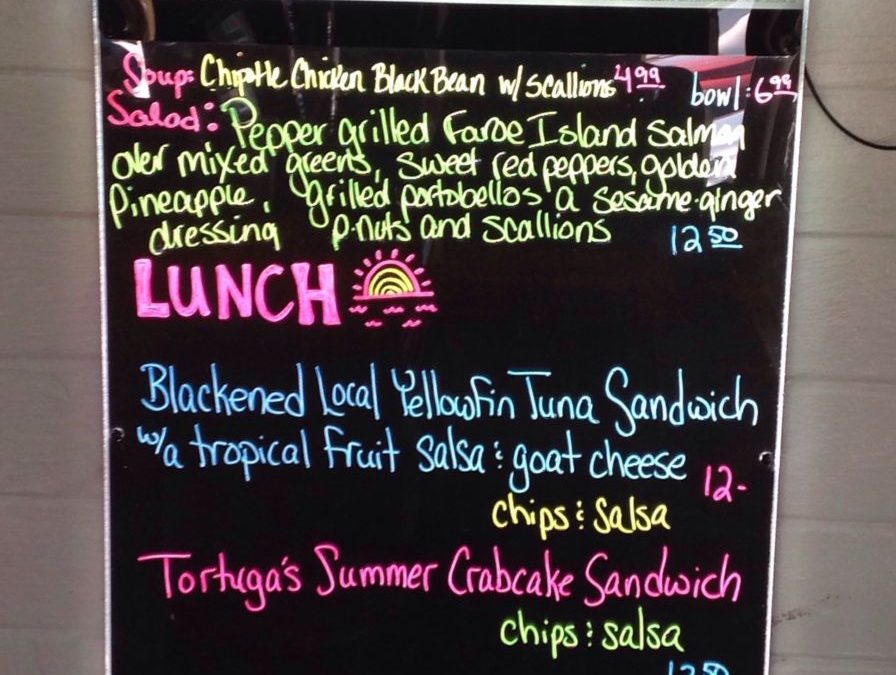 Soup: Chipotle Chicken Black Bean w/ scallions 4.99 bowl: 6.99
Salad: Pepper grilled Faroe Island salmon
over mixed greens, sweet red peppers, golden
Pineapple, grilled portobellos a sesame-ginger
dressing p-nuts and scallions 12.50
LUNCH
Blackened Local Yellowfin Tuna Sandwich
w/a tropical fruit salsa & goat cheese
12-
chips & salsa
Tortuga's Summer Crabcake Sandwich
chips & salsa
12.50